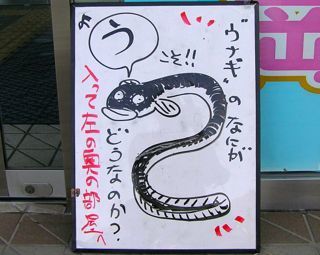 ヴナギのなにが
どうなのか?
よ
う
こそ!!
入って左の奥の部屋へ